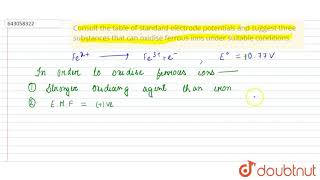 643058322
Consult the table of standard electrode potentials and suggest three
substances that can oxidise ferrous ions under suitable conditions
Fe²⁺ ⟶ Fe³⁺ + e⁻, E° = +0.77 V
In order to oxidise ferrous ions —
① Stronger oxidizing agent than iron
② E.M.F = (+)ve
doubtnut